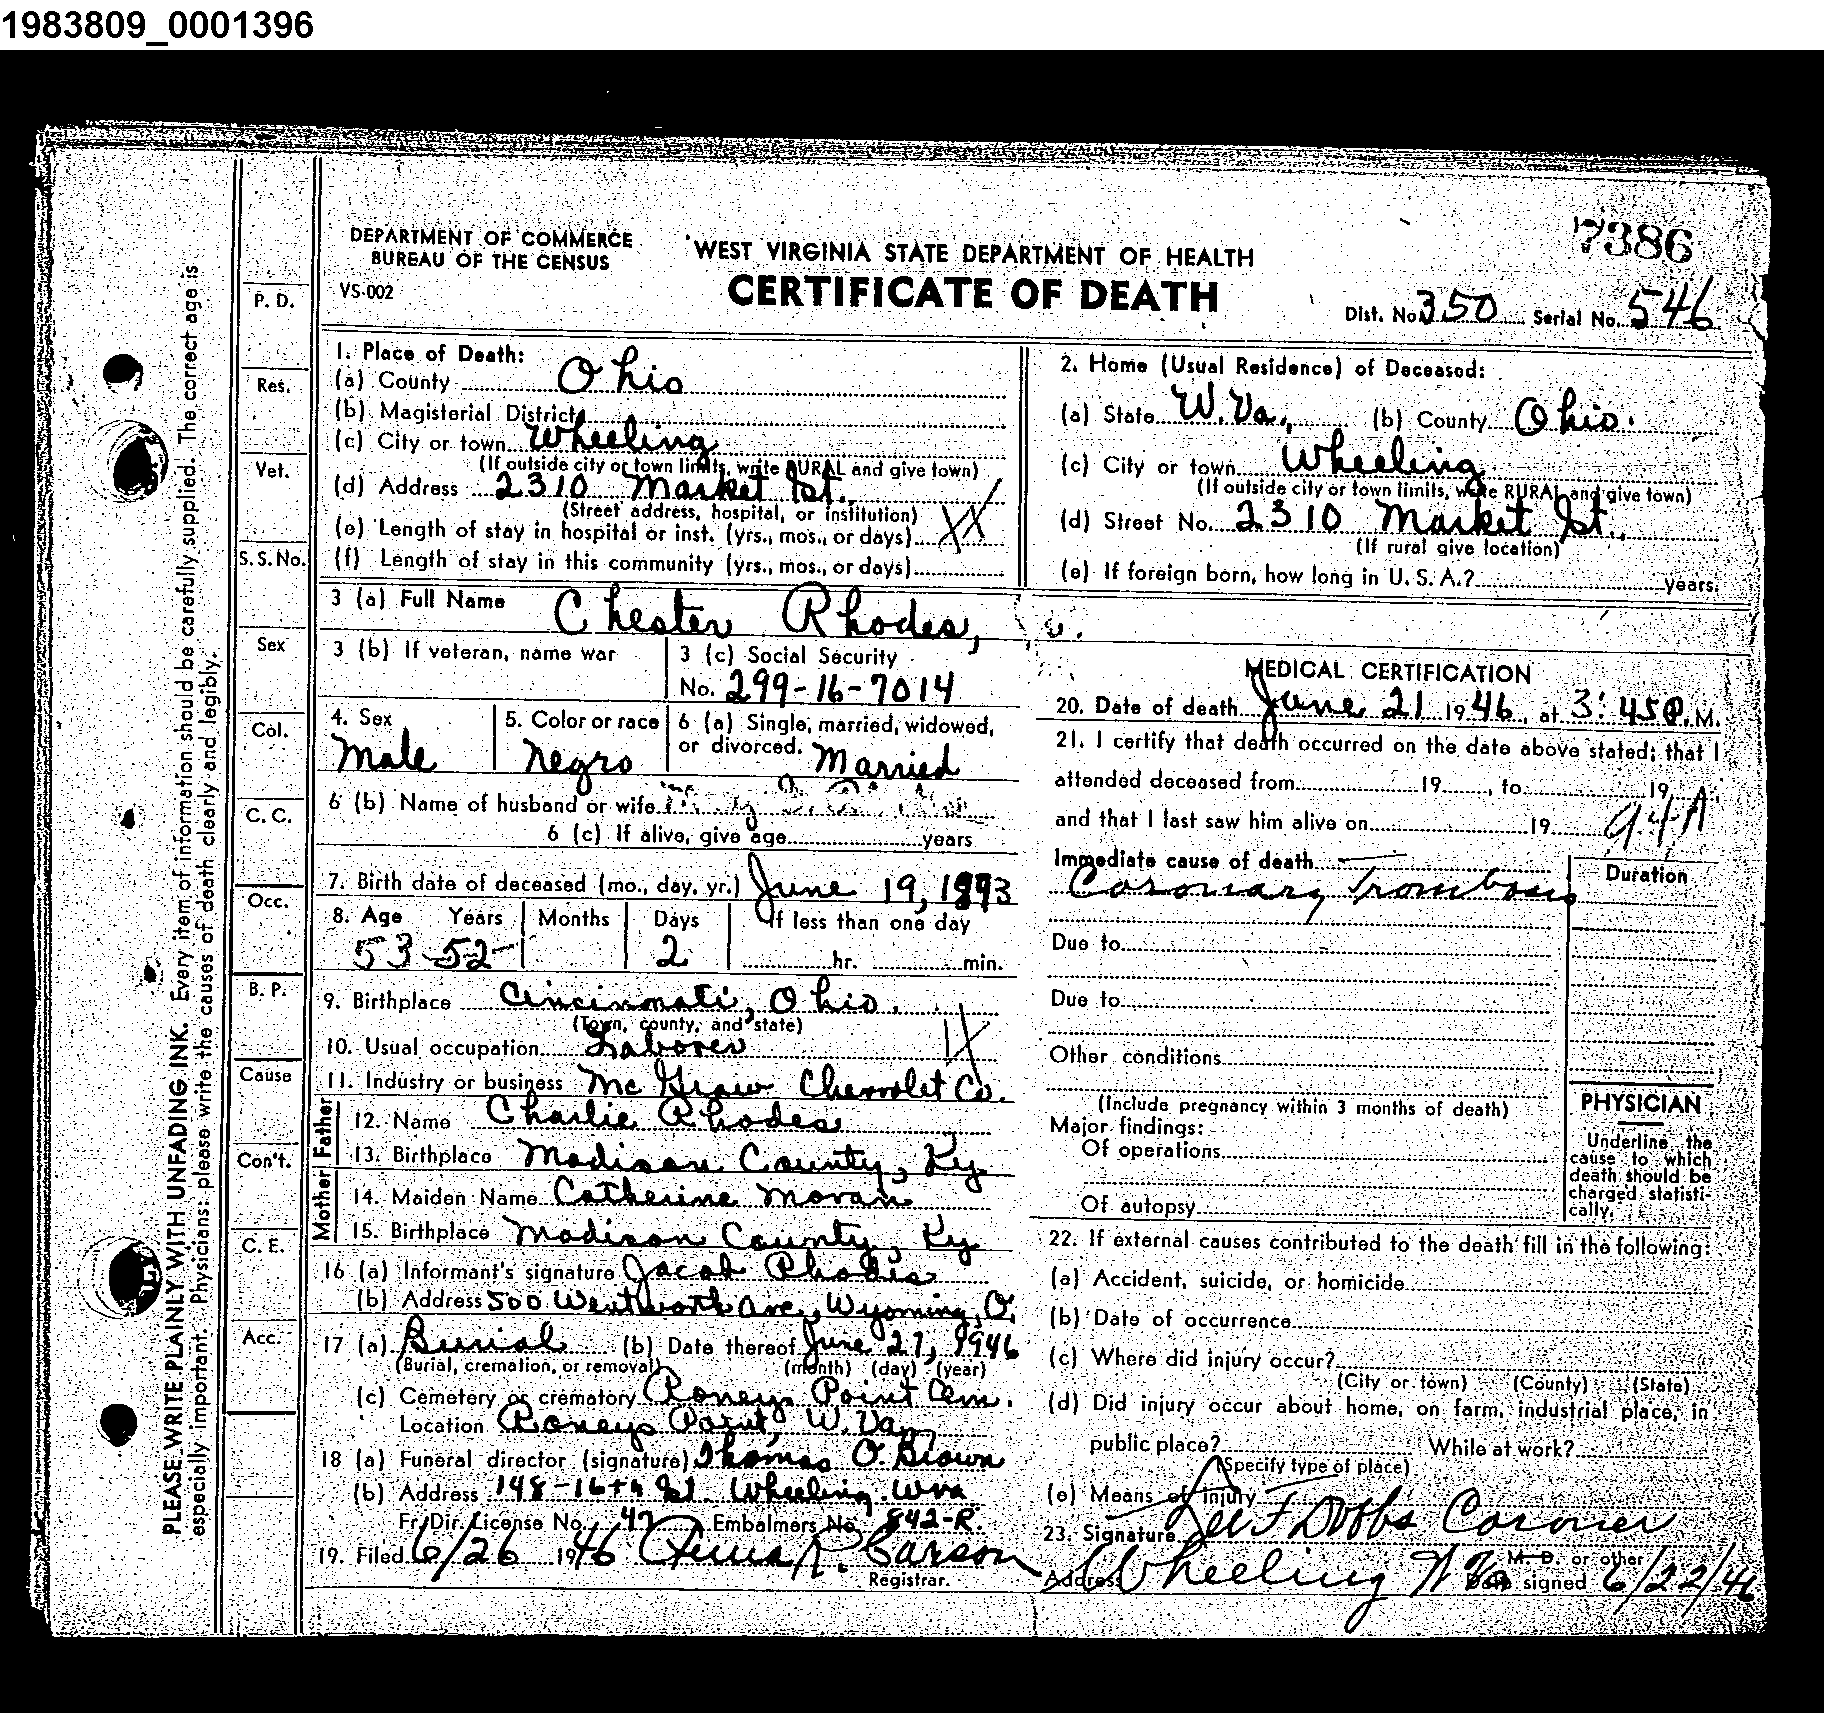 1983809_0001396
7386
DEPARTMENT OF COMMERCE
BUREAU OF THE CENSUS
VS-002
WEST VIRGINIA STATE DEPARTMENT OF HEALTH
CERTIFICATE OF DEATH
Dist. No. 350 Serial No. 546
PLEASE WRITE PLAINLY WITH UNFADING INK. Every item of information should be carefully supplied. The correct age is
especially important. Physicians: please write the causes of death clearly and legibly.
P. D.
Res.
Vet.
S. S. No.
Sex
Col.
C. C.
Occ.
B. P.
Cause
Con't.
C. E.
Acc.
1. Place of Death:
(a) County Ohio
(b) Magisterial District
(c) City or town Wheeling
(If outside city or town limits, write RURAL and give town)
(d) Address 2310 Market St.
(Street address, hospital, or institution)
(e) Length of stay in hospital or inst. (yrs., mos., or days)
(f) Length of stay in this community (yrs., mos., or days)
2. Home (Usual Residence) of Deceased:
(a) State W. Va., (b) County Ohio.
(c) City or town Wheeling
(If outside city or town limits, write RURAL and give town)
(d) Street No. 2310 Market St.,
(If rural give location)
(e) If foreign born, how long in U. S. A.? years.
3 (a) Full Name Chester Rhodes,
3 (b) If veteran, name war
3 (c) Social Security
No. 299-16-7014
4. Sex
Male
5. Color or race
Negro
6 (a) Single, married, widowed,
or divorced. Married
6 (b) Name of husband or wife
6 (c) If alive, give age years
7. Birth date of deceased (mo., day, yr.) June 19, 1893
8. Age Years Months Days If less than one day
53 52 2 hr. min.
9. Birthplace Cincinnati, Ohio.
(Town, county, and state)
10. Usual occupation Laborer
11. Industry or business Mc Graw Chevrolet Co.
Father
12. Name Charlie Rhodes
13. Birthplace Madison County, Ky
Mother
14. Maiden Name Catherine Moran
15. Birthplace Madison County, Ky
16 (a) Informant's signature Jacob Rhodes
(b) Address 500 Wentworth Ave, Wyoming, O.
17 (a) Burial (b) Date thereof June 27, 1946
(Burial, cremation, or removal) (month) (day) (year)
(c) Cemetery or crematory Roneys Point Cem.
Location Roneys Point, W. Va.
18 (a) Funeral director (signature) Thomas O. Brown
(b) Address 148-16th St. Wheeling. W Va
Fr. Dir. License No. 47 Embalmers No. 842-R.
19. Filed 6/26 1946 R. Carson
Registrar.
MEDICAL CERTIFICATION
20. Date of death June 21 1946, at 3:45 P.M.
21. I certify that death occurred on the date above stated; that I
attended deceased from 19 , to 19
and that I last saw him alive on 19 94A
Immediate cause of death
Coronary Trombosis
Duration
Due to
Due to
Other conditions
(Include pregnancy within 3 months of death)
Major findings:
Of operations
Of autopsy
PHYSICIAN
Underline the
cause to which
death should be
charged statisti-
cally.
22. If external causes contributed to the death fill in the following:
(a) Accident, suicide, or homicide
(b) Date of occurrence
(c) Where did injury occur?
(City or town) (County) (State)
(d) Did injury occur about home, on farm, industrial place, in
public place? While at work?
(Specify type of place)
(e) Means of injury
23. Signature Dobbs Coroner
M. D. or other
Address Wheeling W Va Date signed 6/22/46